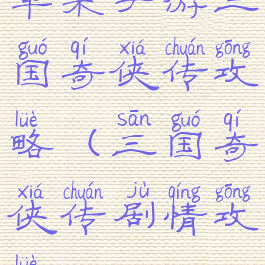 苹果手游三
guó qí xiá chuán gōng
国奇侠传攻
lüè sān guó qí
略(三国奇
xiá chuán jù qíng gōng
侠传剧情攻
lüè